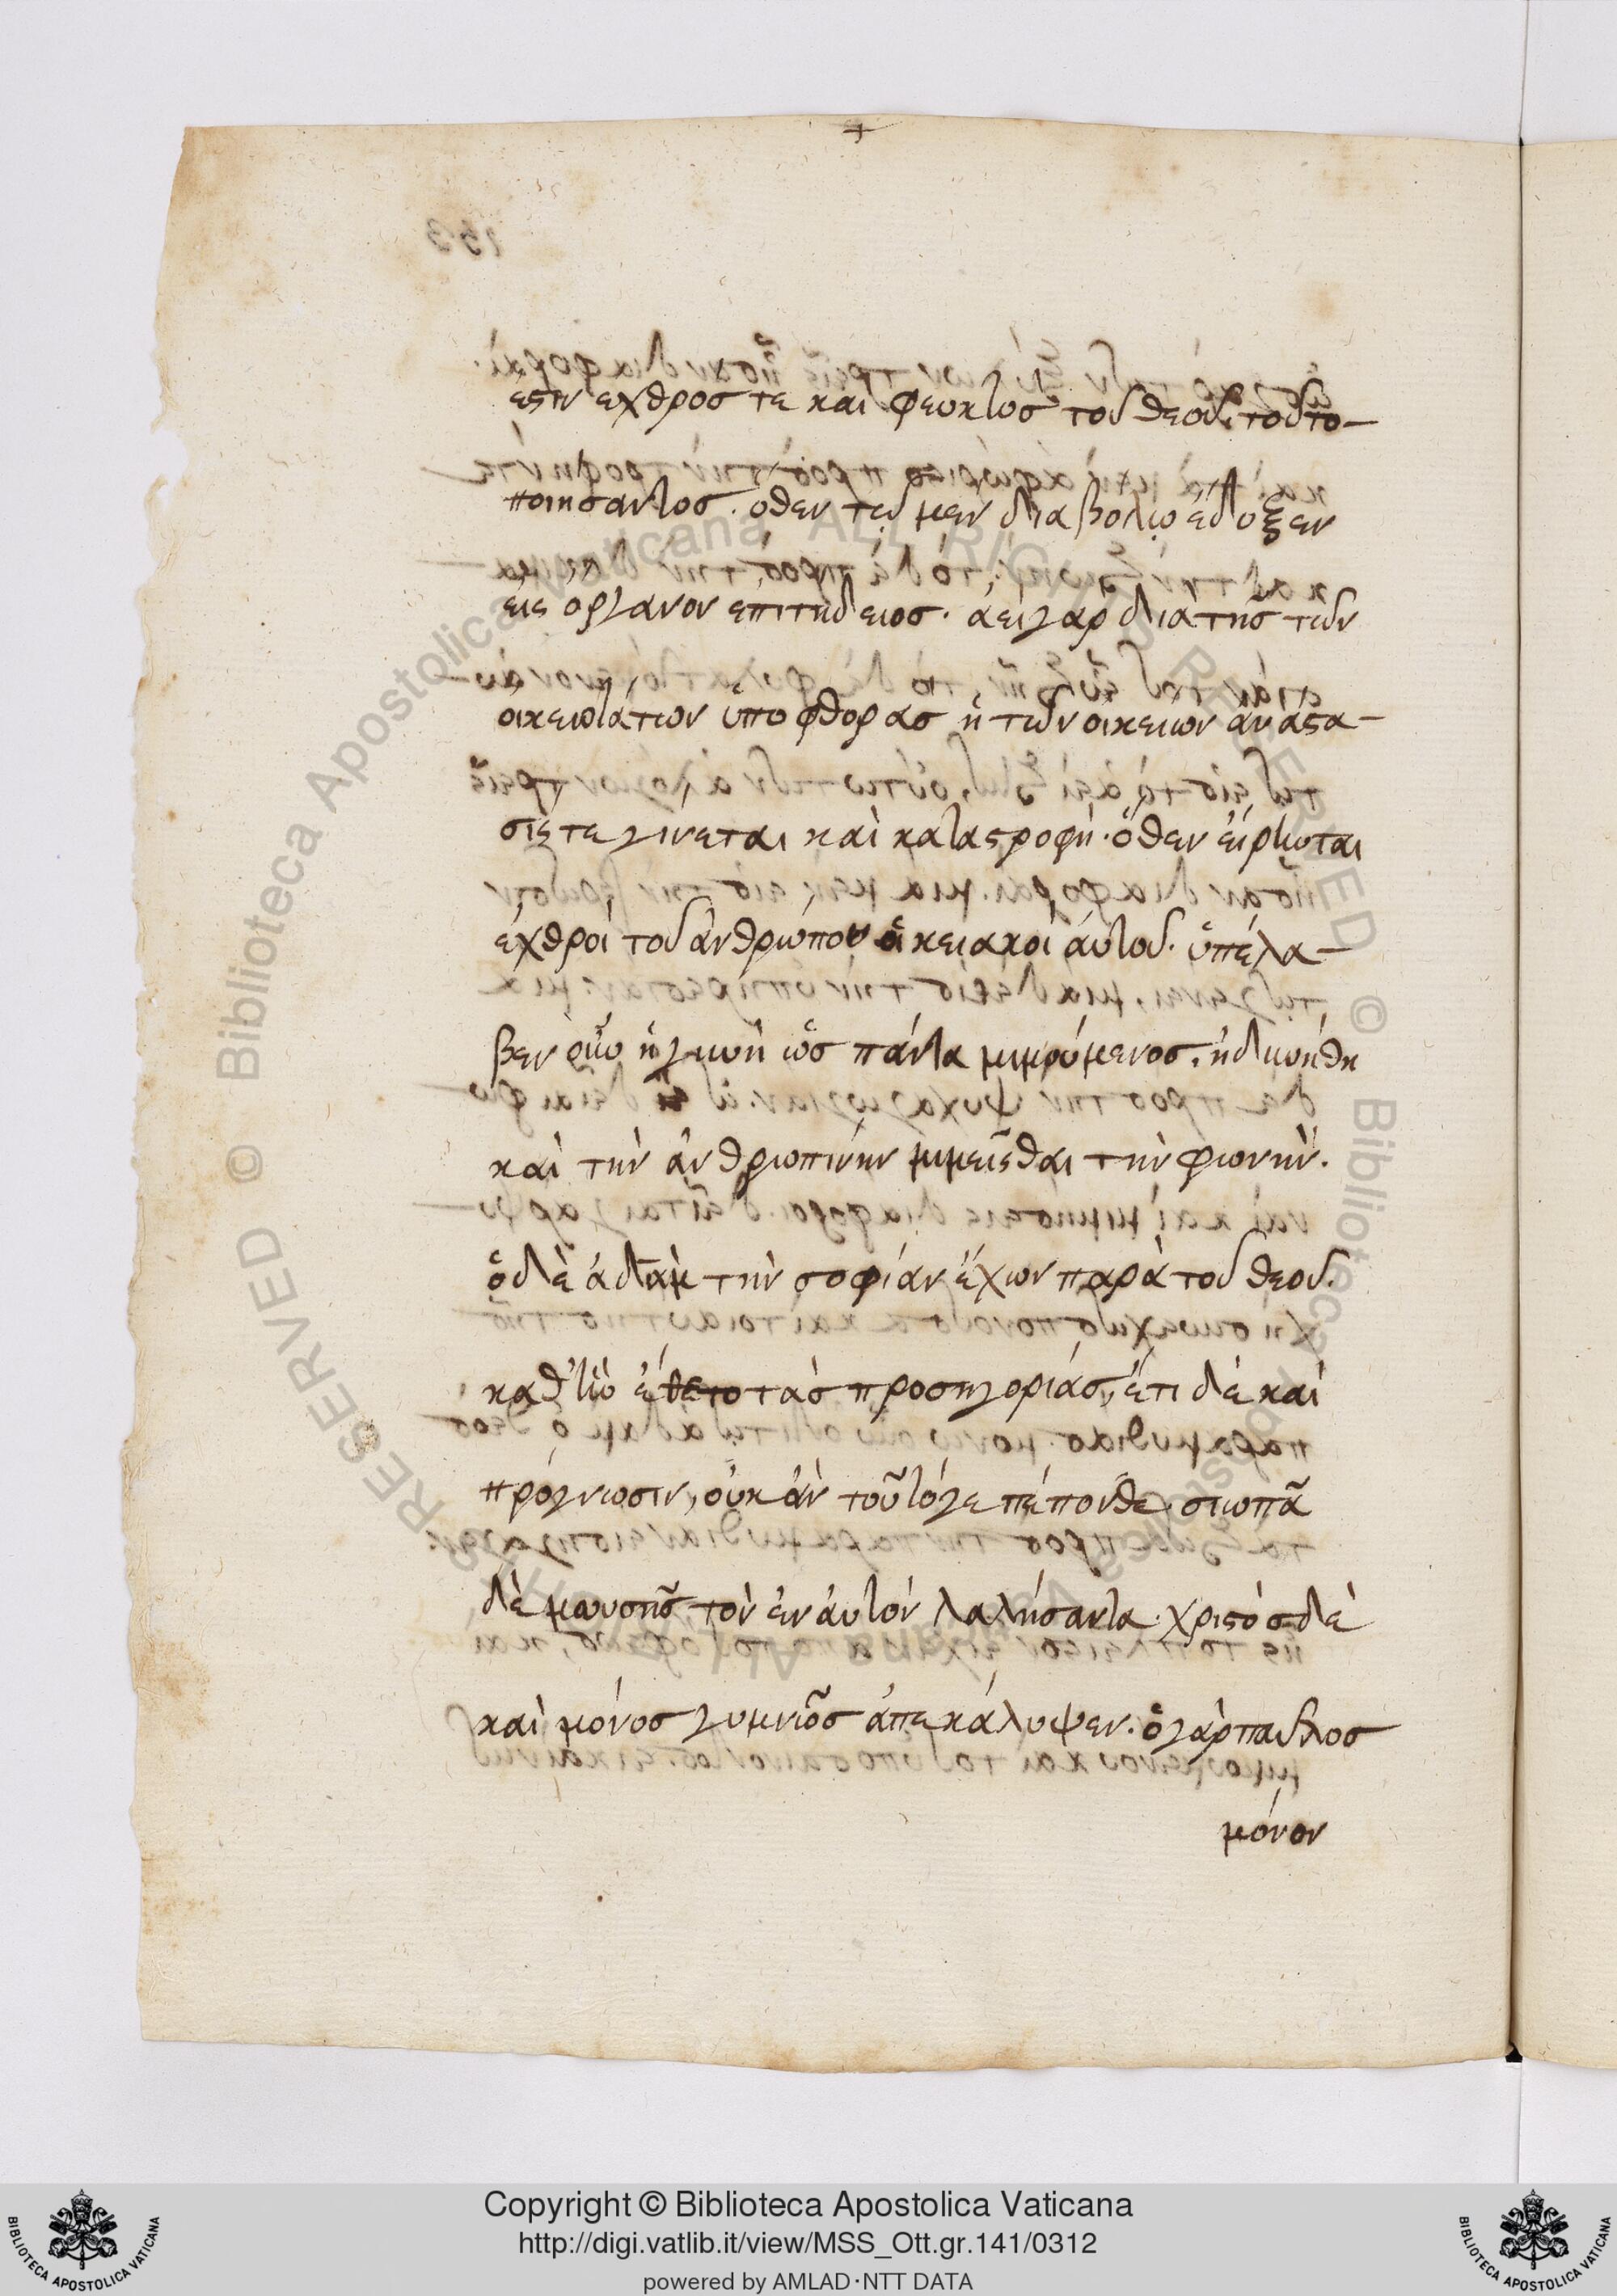 ἐςιν ἐχθρόσ τε καὶ φευκτὸσ τοῦ θεοῦ, τοῦτο-
ποιήσαντοσ. ὅθεν τῷ μὲν διαβόλῳ ἔδοξεν
εἰς ὄργανον ἐπιτήδειοσ. ἀεὶ γὰρ διὰ τῆσ τῶν
οἰκειοτάτων ὑπὸ φθορᾶσ ἡ τῶν οἰκείων ἀνάςα-
σίς τε γίνεται καὶ καταςροφή. ὅθεν εἴρηται
ἐχθροὶ τοῦ ἀνθρώπου οἱ κειακοὶ ἀυτοῦ. ὑπέλα-
βεν οὖν ἡ γυνὴ ὡσ πάντα μιμούμενοσ, ἠδυνήθη
καὶ τὴν ἀνθρωπίνην μιμεῖςθαι τὴν φωνήν.
ὁ δὲ ἀδὰμ τὴν σοφίαν ἔχων παρὰ τοῦ θεοῦ.
καθ' ἣν ἔθετο τὰσ προσηγορίασ, ἔτι δὲ καὶ
πρόγνωσιν, οὐκ ἂν τοῦτό γε πέπονθε. σιωπᾶ
δὲ μωυσῆσ τὸν ἐν ἀυτὸν λαλήσαντα. χριςὸσ δὲ
καὶ μόνοσ γυμνῶσ ἀπεκάλυψεν. ὁ γὰρ παῦλοσ
μόνον
Copyright © Biblioteca Apostolica Vaticana
http://digi.vatlib.it/view/MSS_Ott.gr.141/0312
powered by AMLAD·NTT DATA
BIBLIOTECA APOSTOLICA VATICANA
BIBLIOTECA APOSTOLICA VATICANA